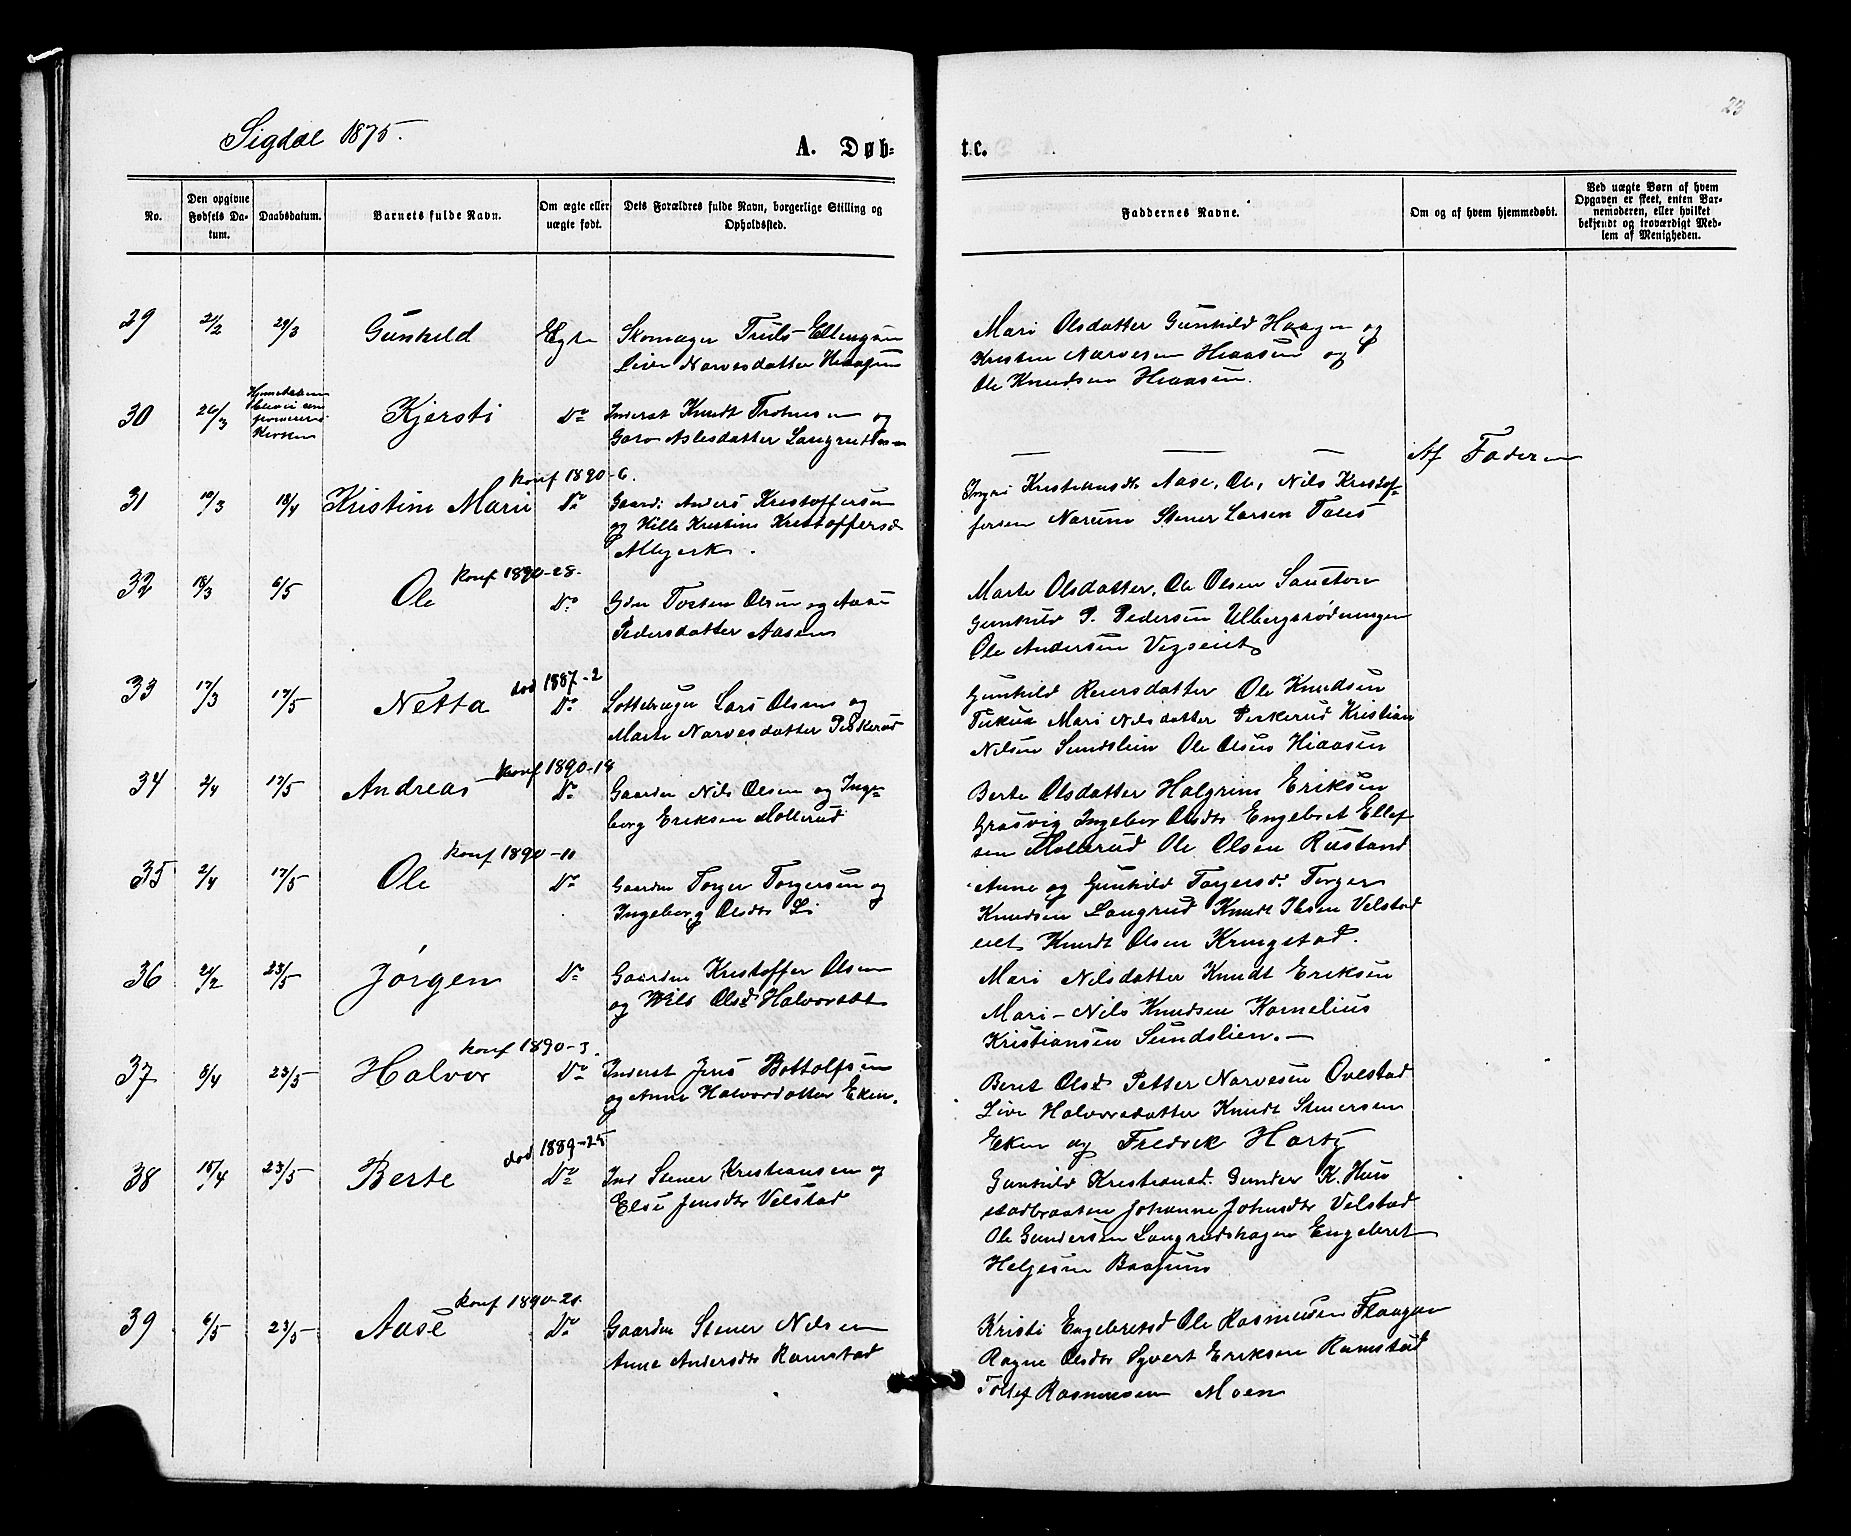 23
Sigdal 1875.
A. Døb-
te.
No.
Den opgivne Fødsels Datum.
Daabsdatum.
Barnets fulde Navn.
Om ægte eller uægte født.
Dets Forældres fulde Navn, borgerlige Stilling og Opholdssted.
Faddernes Navne.
Om og af hvem hjemmedøbt.
Ved uægte Børn af hvem Opgaven er skeet, enten Barnemoderen, eller hvilket bekjendt og troværdigt Medlem af Menigheden.
29 21/2 29/3 Gunhild Egte Skomager Truls Ellingsen
Live Narvesdatter Hiaasen
Mari Olsdatter Gunhild Haagen og
Kristen Narvesen Hiaasen og
Ole Knudsen Hiaasen.
30 26/3 Kjersti Do Inderst Knudt
og
Goro Aslesdatter
Af Faderen
konf 1890-6.
31 19/3 18/4 Kristine Marie Do Gaard: Anders Kristoffersen
og Hille Kristine Kristoffersd
Ingri Kristiansdt. Aase, Ole, Nils Kristof-
fersen Narum Stener Larsen
konf 1890-28.
32 18/3 6/5 Ole Do Gdr Torsten Olsen og Aase
Pedersdatter Aasen
Marte Olsdatter, Ole Olsen
Gunhild P. Pedersen Ulbergsrødningen
Ole Andersen
død 1887-2
33 17/3 17/5 Netta Do Lars Olsen og
Marte Narvesdatter Peskerud
Gunhild Reiersdatter Ole Knudsen
Mari Nilsdatter Peskerud Kristian
Nilsen Sundslien Ole Olsen Hiaasen
konf 1890-18
34 2/4 17/5 Andreas Do Gaardm Nils Olsen og Inge-
borg Eriksen Mollerud
Berte Olsdatter Halgrim Eriksen
Grasvig Ingebor Olsdtr Engebret Ellef
sen Mollerud Ole Olsen Rustand
konf 1890-10
35 2/4 17/5 Ole Do Gaardm Torger Torgersen og
Ingeborg Olsdtr Li
Anne og Gunhild Torgersd. Torger
Knudsen Langrud Knudt Ibsen Velstad
eiet Knudt Olsen Kringstad.
36 21/2 23/5 Jørgen Do Gaardm Kristoffer Olsen
og Olsd
Mari Nilsdatter Knudt Eriksen
Mari - Nils Knudsen Kornelius
Kristiansen Sundslien. -
konf 1890-3.
37 8/4 23/5 Halvor Do Inderst Jens Bottolfsen
og Anne Halvorsdatter Eken.
Beret Olsd Petter Narvesen Ovestad
Live Halvorsdatter Knudt Stenersen
Eken og Fredrik
død 1889-25
38 15/4 23/5 Berte Do Ind Stener Kristiansen og
Else Jensdtr Velstad
Gunhild Kristiansd. Gunder K. Hus
stadbraaten Johanne Johnsdtr Velstad
Ole Gundersen Langrudshagen Engebret
Helgesen
konf 1890-21
39 6/5 23/5 Aase Do Gaardm Stener Nilsen
Anne Andersdtr Ramstad
Kristi Engebretsd Ole Rasmussen Flaagan
Ragne Olsdtr Syvert Eriksen Ramstad
Tollef Rasmussen Moen